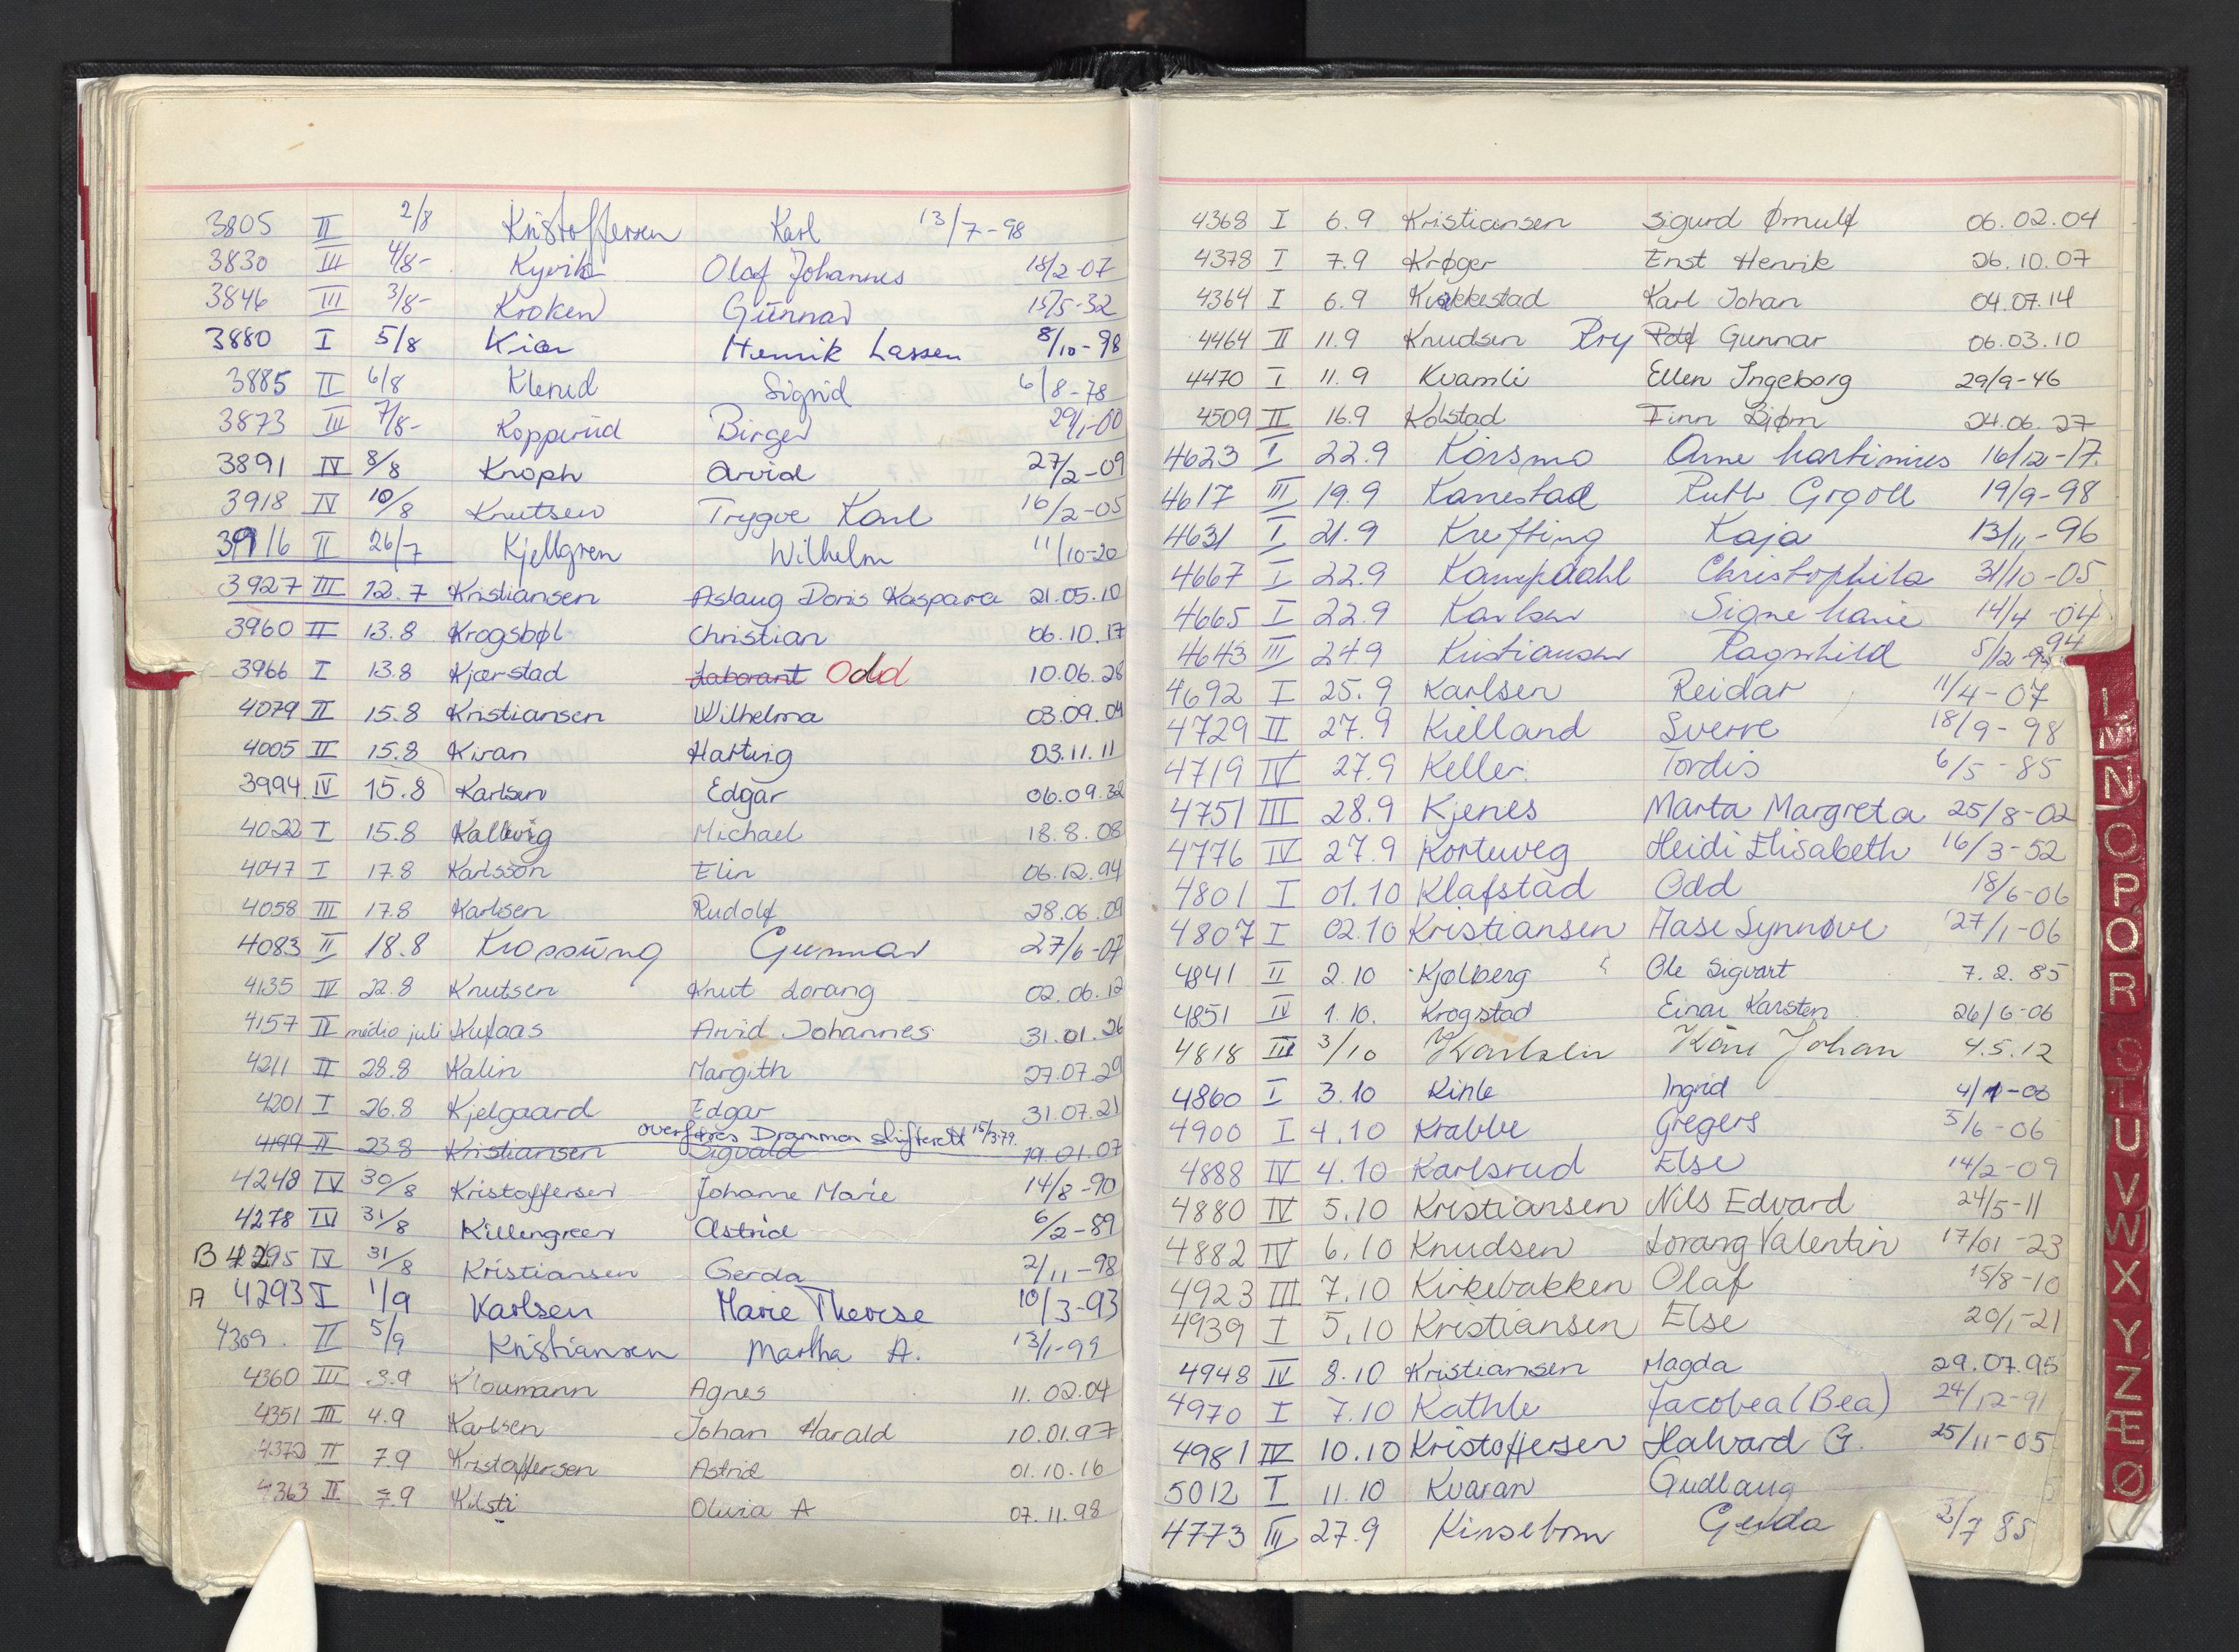 3805 II 2/8 Kristoffersen Karl 13/7-98
3830 III 4/8- Kyvik Olaf Johannes 18/2-07
3846 III 3/8- Kroken Gunnar 15/5-32
3880 I 5/8 Kiær Henrik Lassen 8/10-98
3885 II 6/8 Sigrid 6/8-78
3873 III 7/8- Kopperud Birger 29/1-00
3891 IV 8/8 Knoph Arvid 27/2-09
3918 IV 10/8 Knutsen Trygve Karl 16/2-05
3916 II 26/7 Kjellgren Wilhelm 11/10-20
3927 III 12.7 Kristiansen Aslaug Doris Kaspara 21.05.10
3960 II 13.8 Krogsbøl Christian 06.10.17
3966 I 13.8 Kjærstad Laborant Odd 10.06.28
4079 II 15.8 Kristiansen Wilhelma 03.09.04
4005 II 15.8 Kiran Hartvig 03.11.11
3994 IV 15.8 Karlsen Edgar 06.09.32
4022 I 15.8 Kallevig Michael 18.8.08
4047 I 17.8 Karlsson Elin 06.12.94
4058 III 17.8 Karlsen Rudolf 28.06.09
4083 II 18.8 Krossung Gunnar 27/6-07
4135 IV 22.8 Knutsen Knut Lorang 02.06.12
4157 II medio juli Kufaas Arvid Johannes 31.01.26
4211 II 28.8 Kalin Margith 27.07.29
4201 I 26.8 Kjelgaard Edgar 31.07.21
overføres Drammen skifterett 15/3-79.
4199 II 23.8 Kristiansen Sigvald 19.01.07
4248 IV 30/8 Kristoffersen Johanne Marie 14/8-90
4278 IV 31/8 Killengreen Astrid 6/2-89
B 4295 IV 31/8 Kristiansen Gerda 2/11-98
A 4293 I 1/9 Karlsen Marie Therese 10/3-93
4309. II 5/9 Kristiansen Martha A. 13/1-99
4360 III 3.9 Kloumann Agnes 11.02.04
4351 III 4.9 Karlsen Johan Harald 10.01.97
4372 II 7.9 Kristoffersen Astrid 01.10.16
4363 II 7.9 Kilsti Olivia A 07.11.98
4368 I 6.9 Kristiansen Sigurd Ørnulf 06.02.04
4378 I 7.9 Krøger Ernst Henrik 26.10.07
4364 I 6.9 Kvakkestad Karl Johan 04.07.14
4464 II 11.9 Knudsen Roy Rolf Gunnar 06.03.10
4470 I 11.9 Kvamli Ellen Ingeborg 29/9-46
4509 II 16.9 Kolstad Finn Bjørn 24.06.27
4623 I 22.9 Korsmo Arne Martinius 16/12-17.
4617 III 19.9 Kanestad Ruth Grgoll 19/9-98
4631 I 21.9 Krefting Kaja 13/11-96
4667 I 22.9 Kampdahl Christophila 31/10-05
4665 I 22.9 Karlsen Signe Marie 14/4-04
4643 III 24.9 Kristiansen Ragnhild 5/12-94
4692 I 25.9 Karlsen Reidar 11/4-07
4729 II 27.9 Kielland Sverre 18/9-98
4719 IV 27.9 Keller Tordis 6/5-85
4751 III 28.9 Kjenes Marta Margreta 25/8-02
4776 IV 27.9 Korteweg Heidi Elisabeth 16/3-52
4801 I 01.10 Klafstad Odd 18/6-06
4807 I 02.10 Kristiansen Aase Synnøve 27/1-06
4841 II 2.10 Kjølberg Ole Sigvart 7.2.85
4851 IV 1.10. Krogstad Einar Karsten 26/6-06
4818 III 3/10 Karlsen Kåre Johan 4.5.12
4860 I 3.10 Kihle Ingrid 4/1-00
4900 I 4.10 Krabbe Gregers 5/6-06
4888 IV 4.10 Karlsrud Else 14/2-09
4880 IV 5.10 Kristiansen Nils Edvard 24/5-11
4882 IV 6.10 Knudsen Lorang Valentin 17/01-23
4923 III 7.10 Kirkebakken Olaf 15/8-10
4939 I 5.10 Kristiansen Else 20/1-21
4948 IV 8.10 Kristiansen Magda 29.07.95
4970 I 7.10 Kathle Jacobea (Bea) 24/12-91
4981 IV 10.10 Kristoffersen Halvard G. 25/11-05
5012 I 11.10 Kvaran Gudlaug
4773 III 27.9 Kinsebom Gerda 2/7 85
L
M
N
O
P
Q
R
S
T
U
V
W
X
Y
Z
Æ
Ø